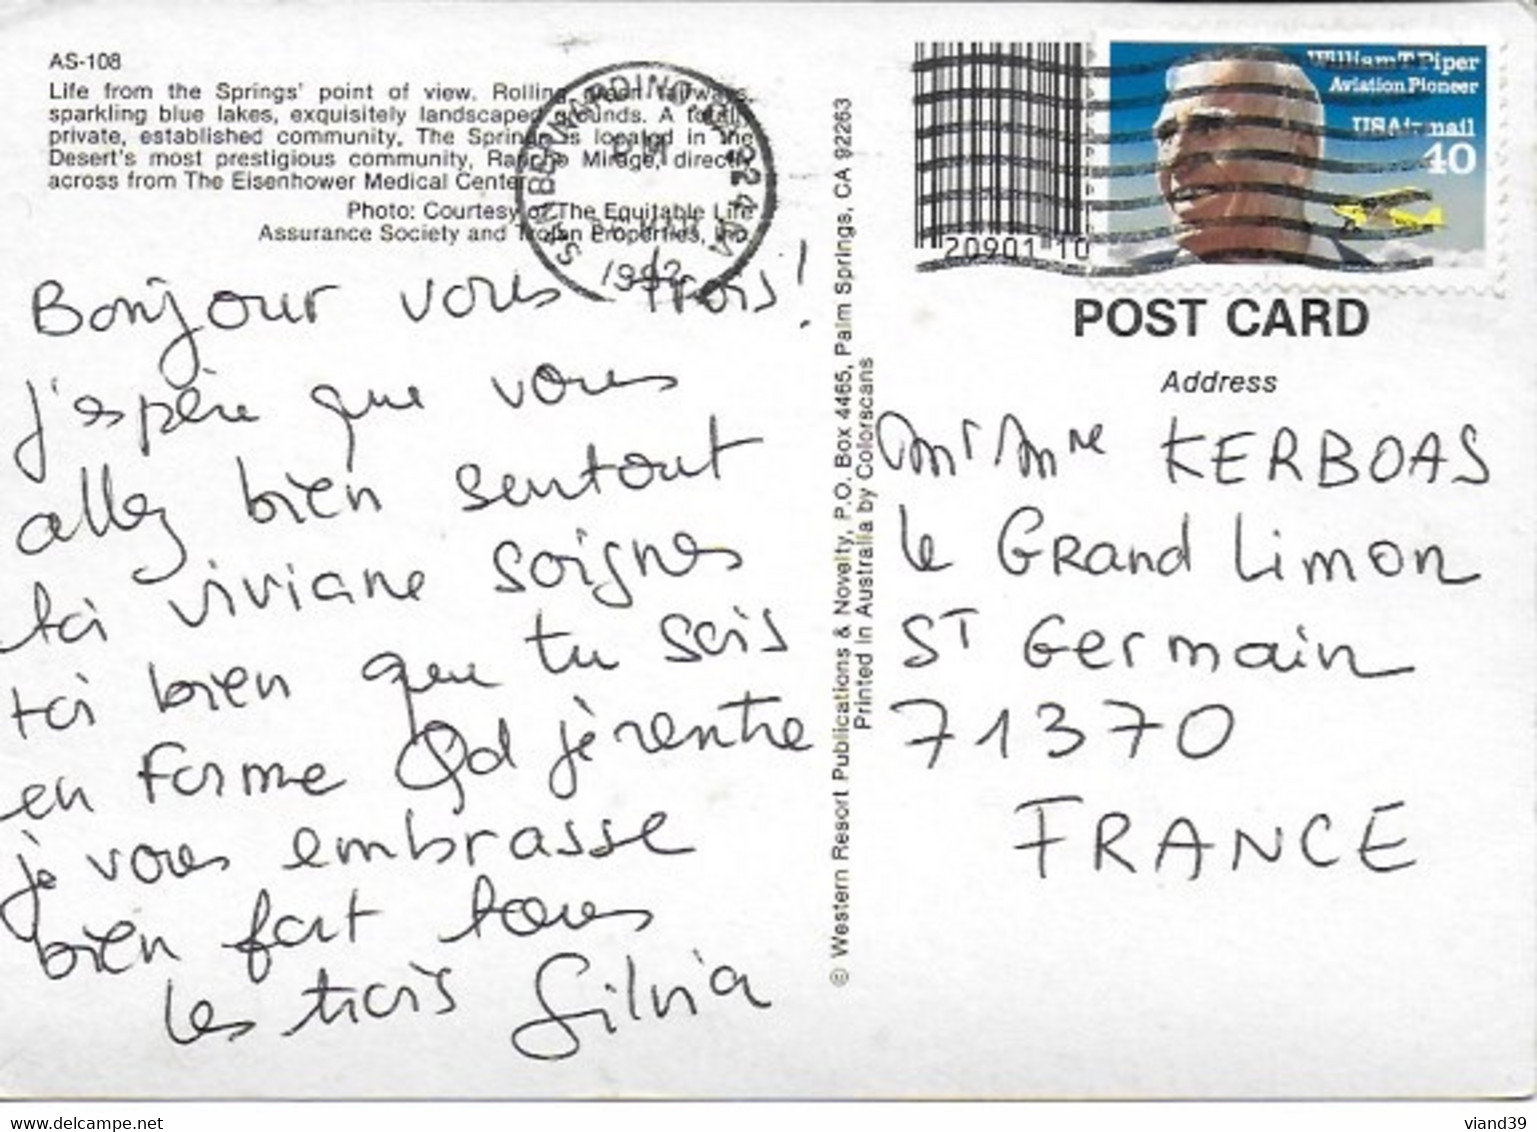 AS-108
Life from the Springs' point of view. Rolling green fairways,
sparkling blue lakes, exquisitely landscaped grounds. A totally
private, established community, The Springs is located in the
Desert's most prestigious community, Rancho Mirage, directly
across from The Eisenhower Medical Center.
Photo: Courtesy of The Equitable Life
Assurance Society and Trojan Properties, Inc.
SAN BERNARDINO
PM
1992
Bonjour vous trois!
J'espère que vous
allez bien surtout
toi viviane soignes
toi bien que tu sois
en forme Qd je rentre
je vous embrasse
bien fort tous
les trois Silvia
© Western Resort Publications & Novelty, P.O. Box 4465, Palm Springs, CA 92263
Printed in Australia by Colorscans
20901 10
William T. Piper
Aviation Pioneer
USAirmail
40
POST CARD
Address
Mr Mme KERBOAS
le Grand Limon
ST Germain
71370
FRANCE
https://www.delcampe.net
viand39